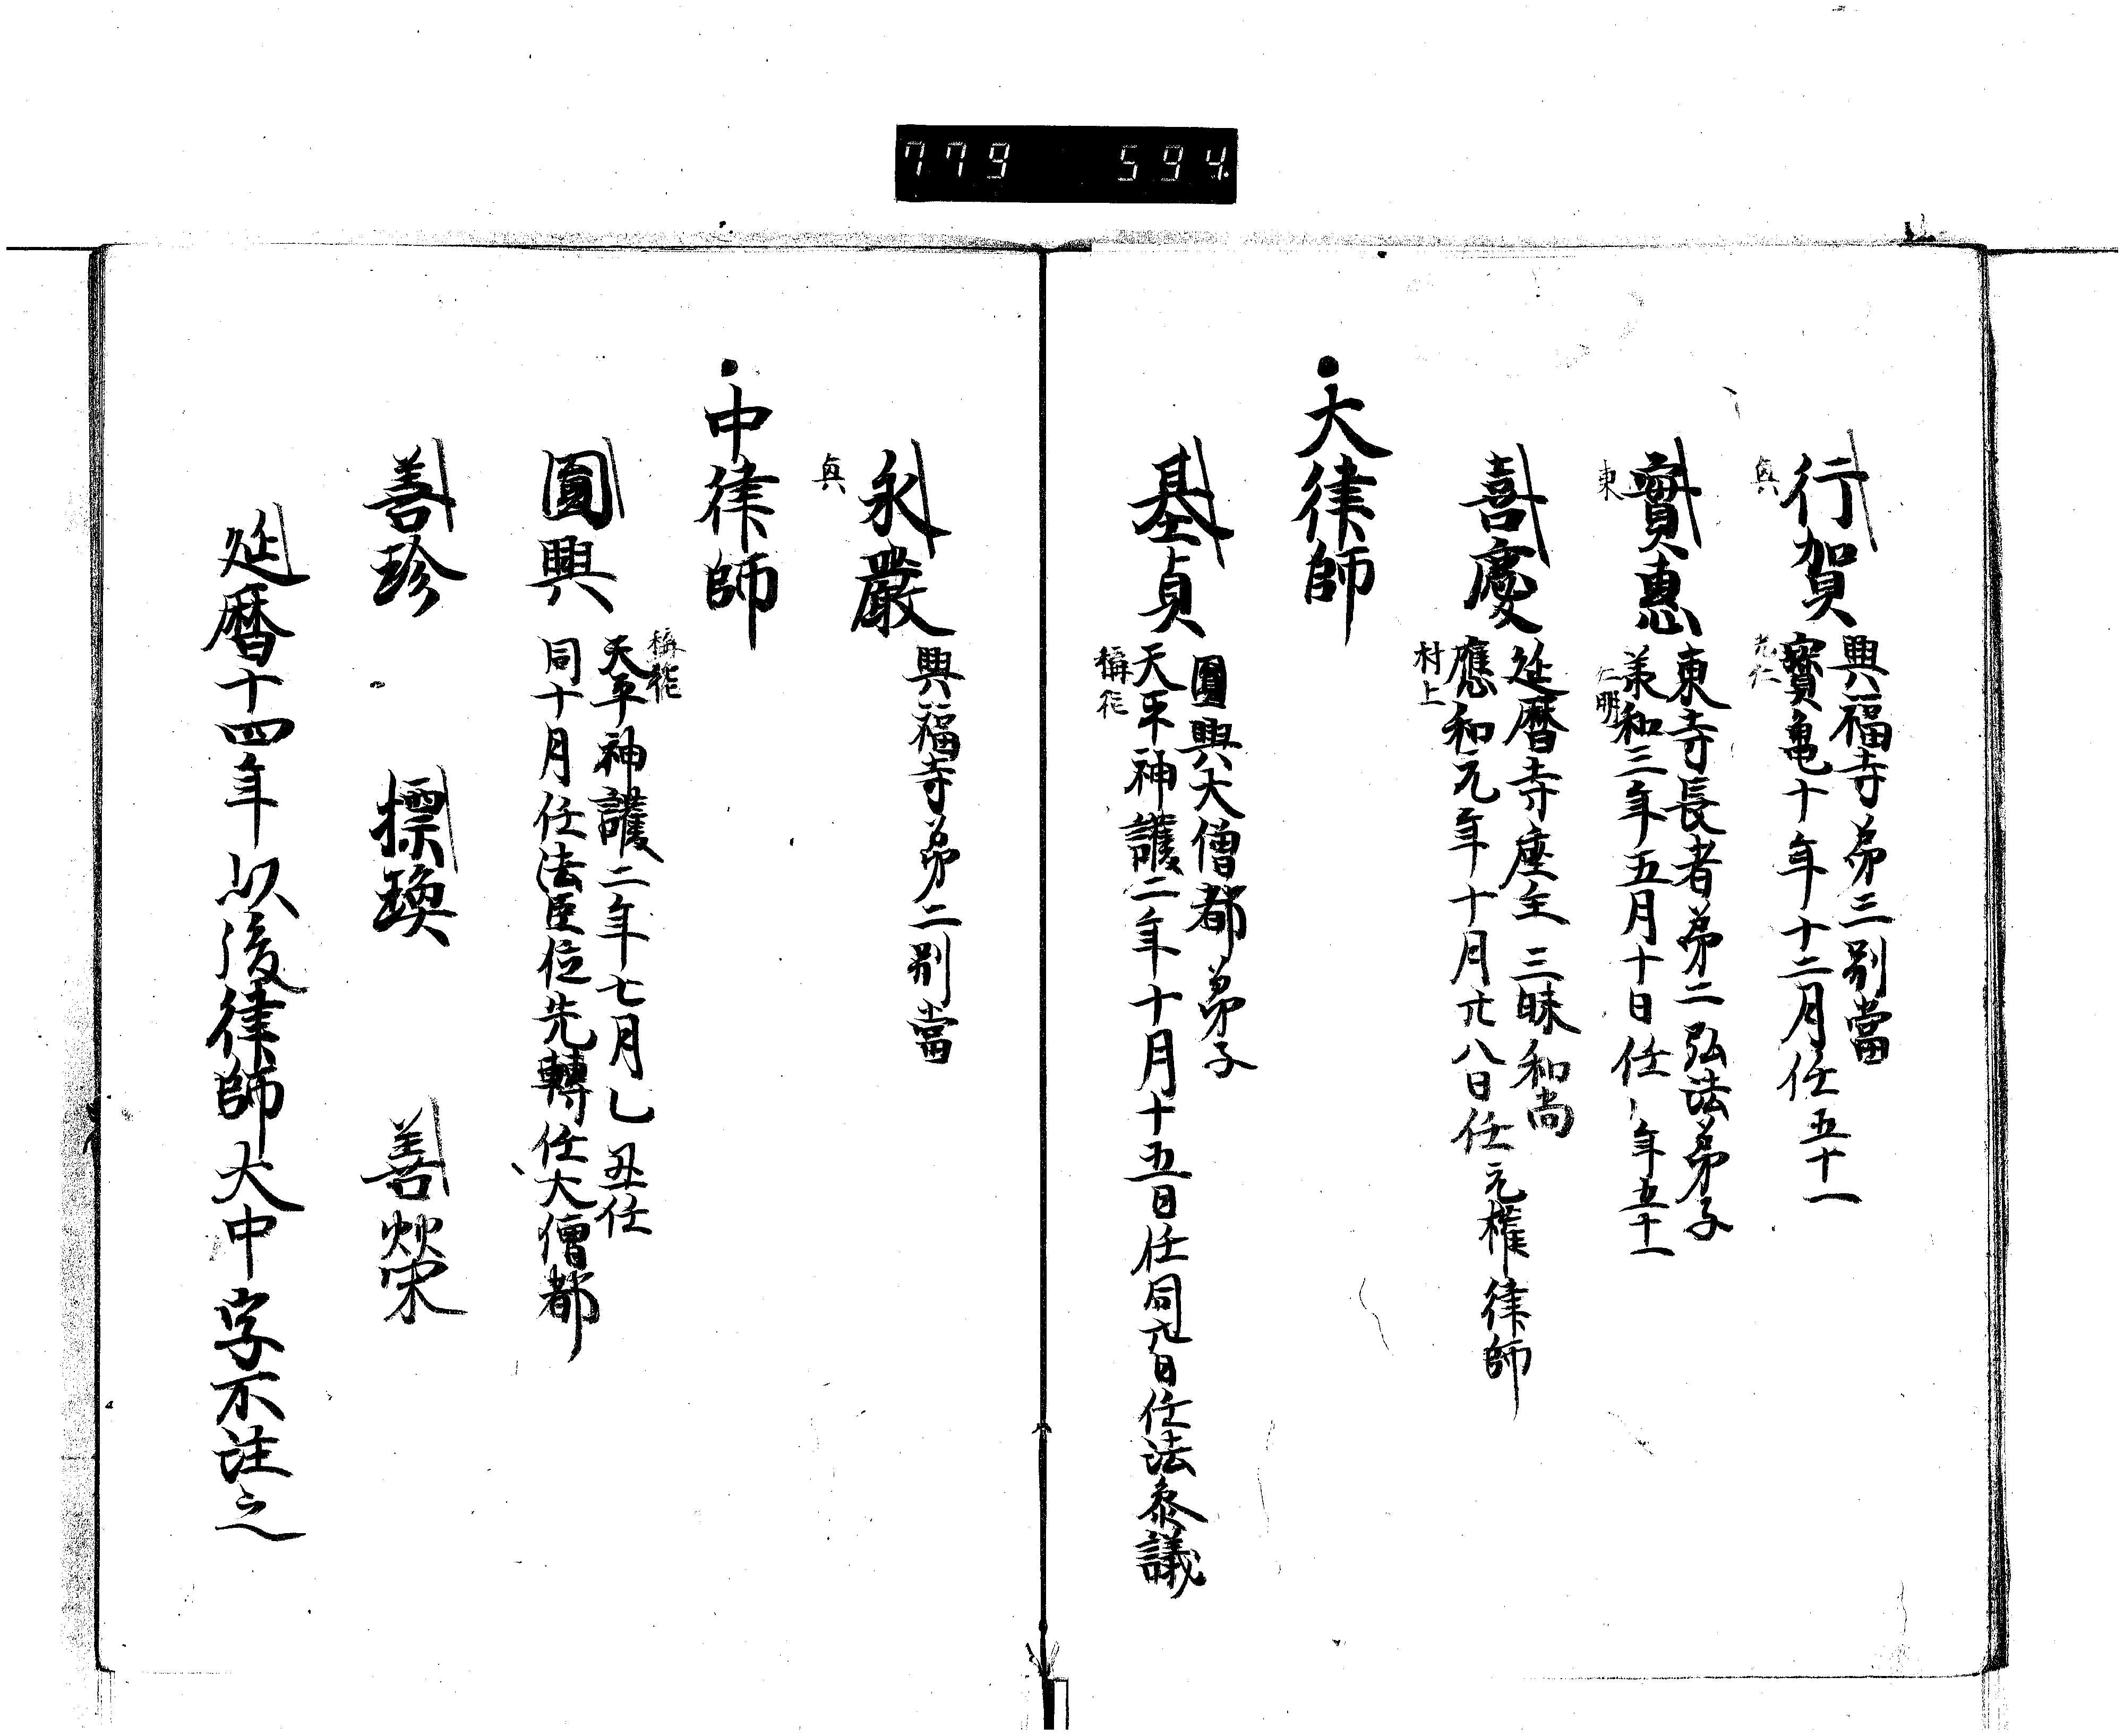 779 594
行賀
興
興福寺弟三別當
寶亀十年十二月任五十一
光仁
實惠
東
東寺長者弟二弘法弟子
羕和三年五月十日任年五十一
仁明
喜慶
延暦寺座主三昧和尚
應和元年十月廿八日任元権律師
村上
大律師
基貞
圓興大僧都弟子
天平神護二年十月十五日任同廿日任法叅議
稱徳
永嚴
興
興福寺弟二別當
中律師
圓興
稱徳
天平神護二年七月乙丑任
同十月任法臣位先轉任大僧都
善珍 摽瓊 善榮
延暦十四年以後律師大中字不注之